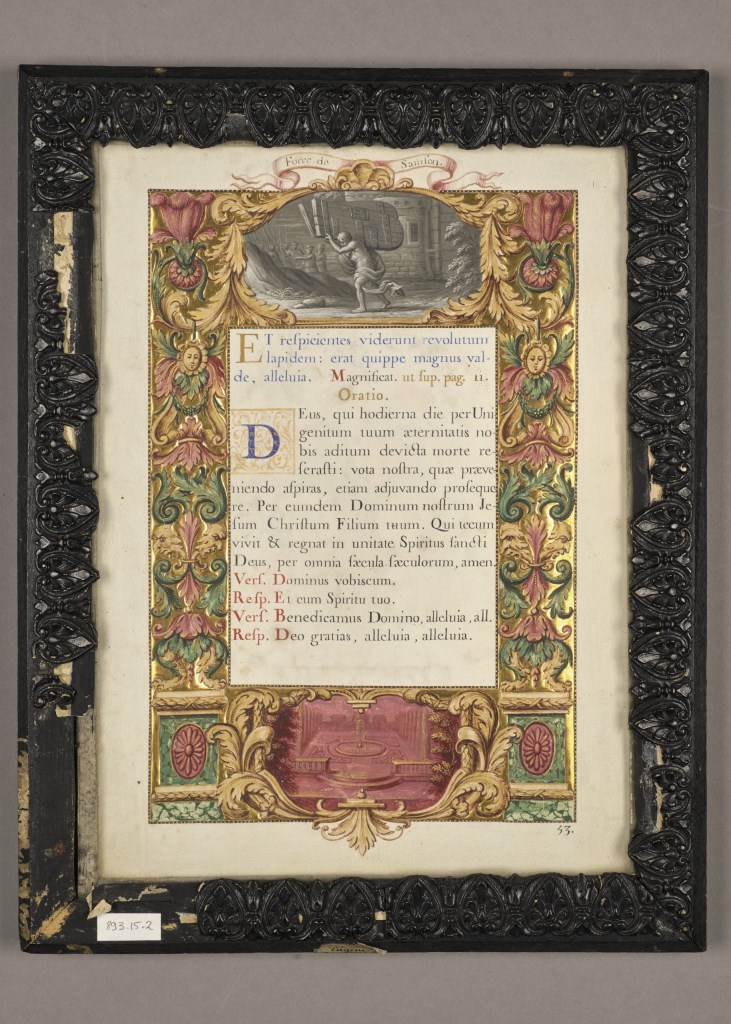 Force de Samson.
ET respicientes viderunt revolutum
lapidem: erat quippe magnus val-
de, alleluia. Magnificat. ut sup. pag. 11.
Oratio.
DEus, qui hodierna die per Uni
genitum tuum æternitatis no-
bis aditum devicta morte re-
serasti: vota nostra, quæ præve-
niendo aspiras, etiam adjuvando proseque
re. Per eumdem Dominum nostrum Je-
sum Christum Filium tuum. Qui tecum
vivit & regnat in unitate Spiritus sancti
Deus, per omnia sæcula sæculorum, amen.
Vers. Dominus vobiscum.
Resp. Et cum Spiritu tuo.
Vers. Benedicamus Domino, alleluia, all.
Resp. Deo gratias, alleluia, alleluia.
53.
893.15.2